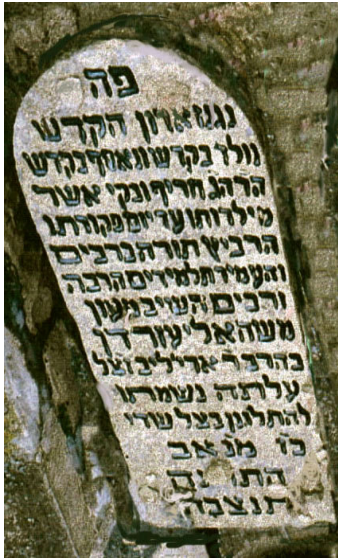 פה
נגנז ארון הקדש
נולד בקדש ונאסף בקדש
הרהג חריף ובקי אשר
מילדותו עד יום פקודתו
הרביץ תורה ברבים
והעמיד תלמידים הרבה
ורבים השיב מעון
משה אליעזר דן
בהרב ר ארי ליב זצל
עלתה נשמתו
להתלונן בצל שדי
מנ אב
תנצבה